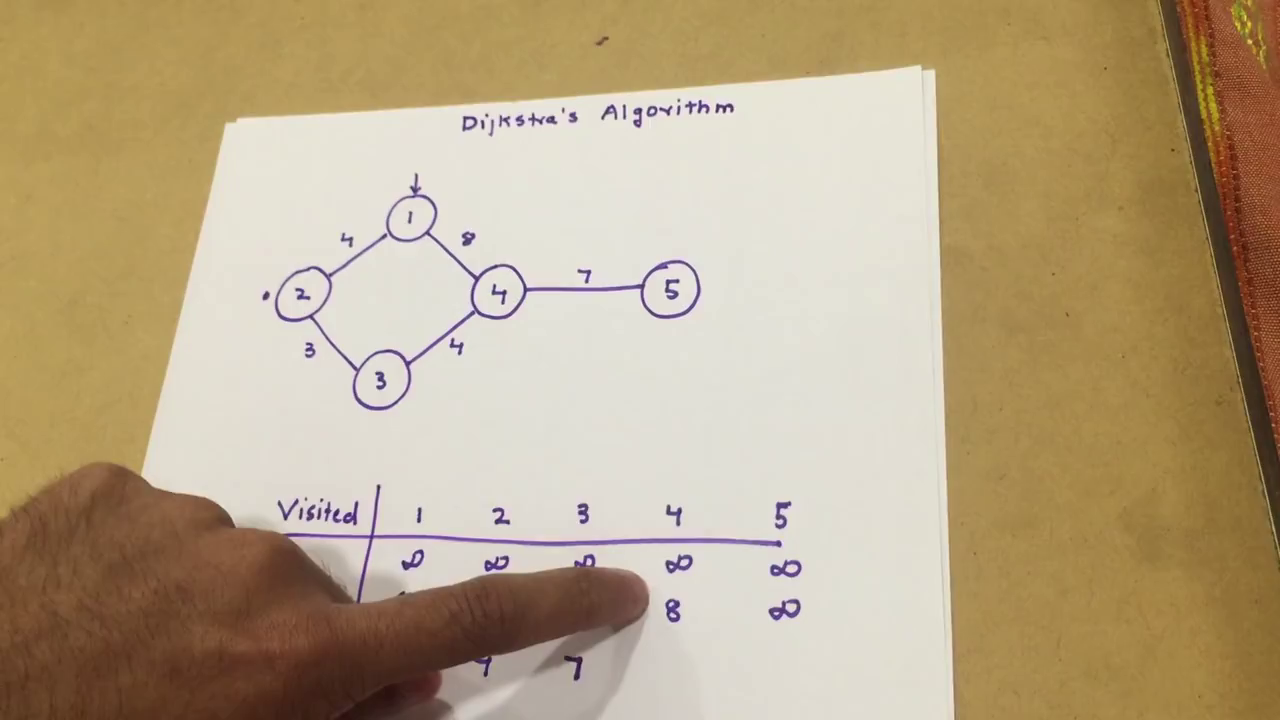 Dijkstra's Algorithm
1
4 8
2 4 7 5
3 4
3
Visited 1 2 3 4 5
∞ ∞ ∞ ∞ ∞
8 ∞
7